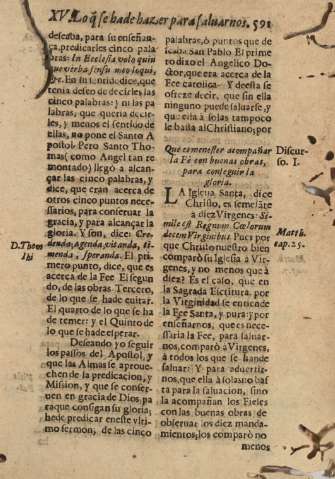 XV. Lo q̃ se ha de hazer para saluarnos. 591
deseaba, para su enseñan-
ça, predicarles cinco pala-
bras: In Ecclesia volo quin
que verba sensu meo loqui,
Bē. En su tendia dize, que
tenia deseo de decirles las
cinco palabras: y ni las pa
labras, que queria decir-
les, y menos el sentido de
ellas, no pone el Santo A
postol: Pero Santo Tho-
mas (como Angel tan re
montado) llegó à alcan-
çar las cinco palabras, y
dize, que eran acerca de
otros cinco puntos neces-
sarios, para conseruar la
gracia, y para alcançar la
gloria. Y son, dize: Cre-
denda, agenda, vitanda, ti-
menda, Speranda. El pri-
mero punto, dize, que es
acerca de la Fee El segun
do, de las obras Tercero,
de lo que se hade euitar.
El quarto de lo que se ha
de temer: y el Quinto de
lo que se hade esperar.
Deseando yo seguir
los passos del Apostol, y
que las Almas se aproue-
chen de la predicacion, y
Mission, y que se conser-
uen en gracia de Dios, pa
ra que consigan su gloria;
hede predicar en este vl-
timo sermon, de las cinco
D. Thom
ibi
palabras, ò puntos que de
seaba San Pablo El prime
ro dixo el Angelico Do-
ctor, que era acerca de la
Fee catolica. Y de esta se
ofreze decir, que sin ella
ninguno puede saluarse, y
que ella à solas tampoco
le basta al Christiano; por
Que es menester acompañar
la Fè con buenas obras,
para conseguir la
gloria.
Discur-
so. I.
LA Iglesia Santa, dice
Christo, es semejāte
à diez Virgenes: Si-
mile est Regnum Cœlorum
decem Virginibus. Pues por
que Christo nuestro bien
comparò su Iglesia à Vir-
genes, y no menos que à
diez? Es el caso, que en
la Sagrada Escritura, por
la Virginidad se entiende
la Fee Santa, y pura: y por
enseñarnos, que es neces-
saria la Fee, para saluar-
nos, comparò à Virgenes,
à todos los que se hande
saluar: Y para aduertir-
nos, que ella à solas no bas
ta para la saluacion, sino
la acompañan los Fieles
con las buenas obras de
obseruar los diez manda-
mientos, los comparò no
Matth.
cap. 25.
menos